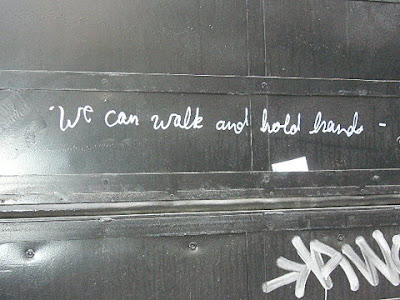 "We can walk and hold hands -